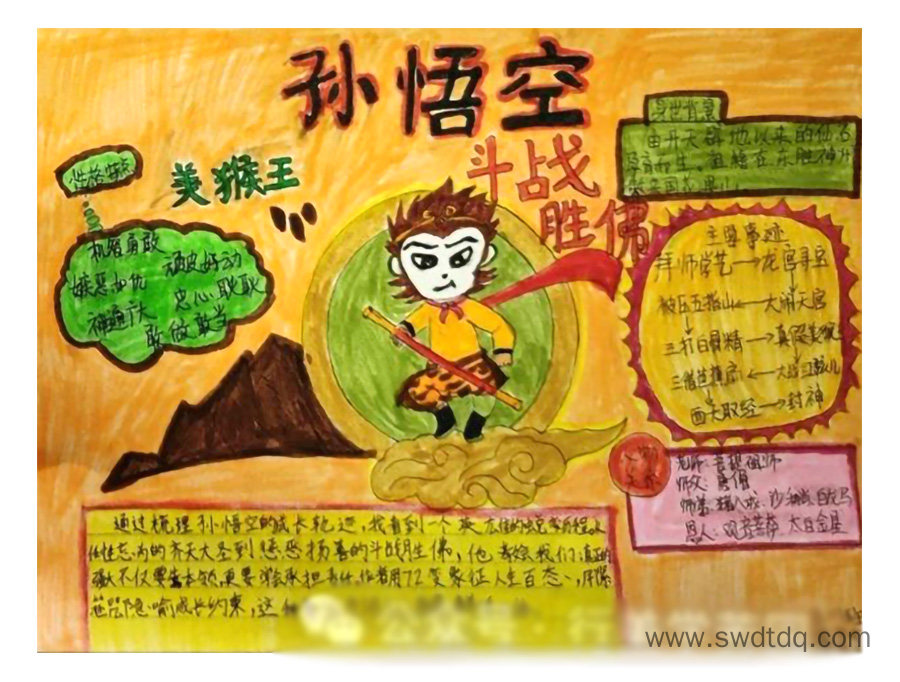 孙悟空
斗战
胜佛
美猴王
性格特点
机智勇敢
顽皮好动
嫉恶如仇
忠心耿耿
神通广大
敢做敢当
身世背景
由开天辟地以来的仙石
孕育而生，祖籍在东胜神州
主要事迹
拜师学艺→龙宫寻宝
被压五指山←大闹天宫
三打白骨精→真假美猴
三借芭蕉扇←大战红孩儿
西天取经→封神
老师：菩提祖师
师父：唐僧
师弟：猪八戒、沙和尚、白龙马
恩人：观音菩萨 太白金星
通过梳理孙悟空的成长轨迹，我看到一个英
齐天大圣到惩恶扬善的斗战胜佛，他 我们：真正的
强人不仅要 本领，更要学会承担责任，他若用72变象征人生百态，用
箍咒隐喻成长约束，这
www.swdtdq.com